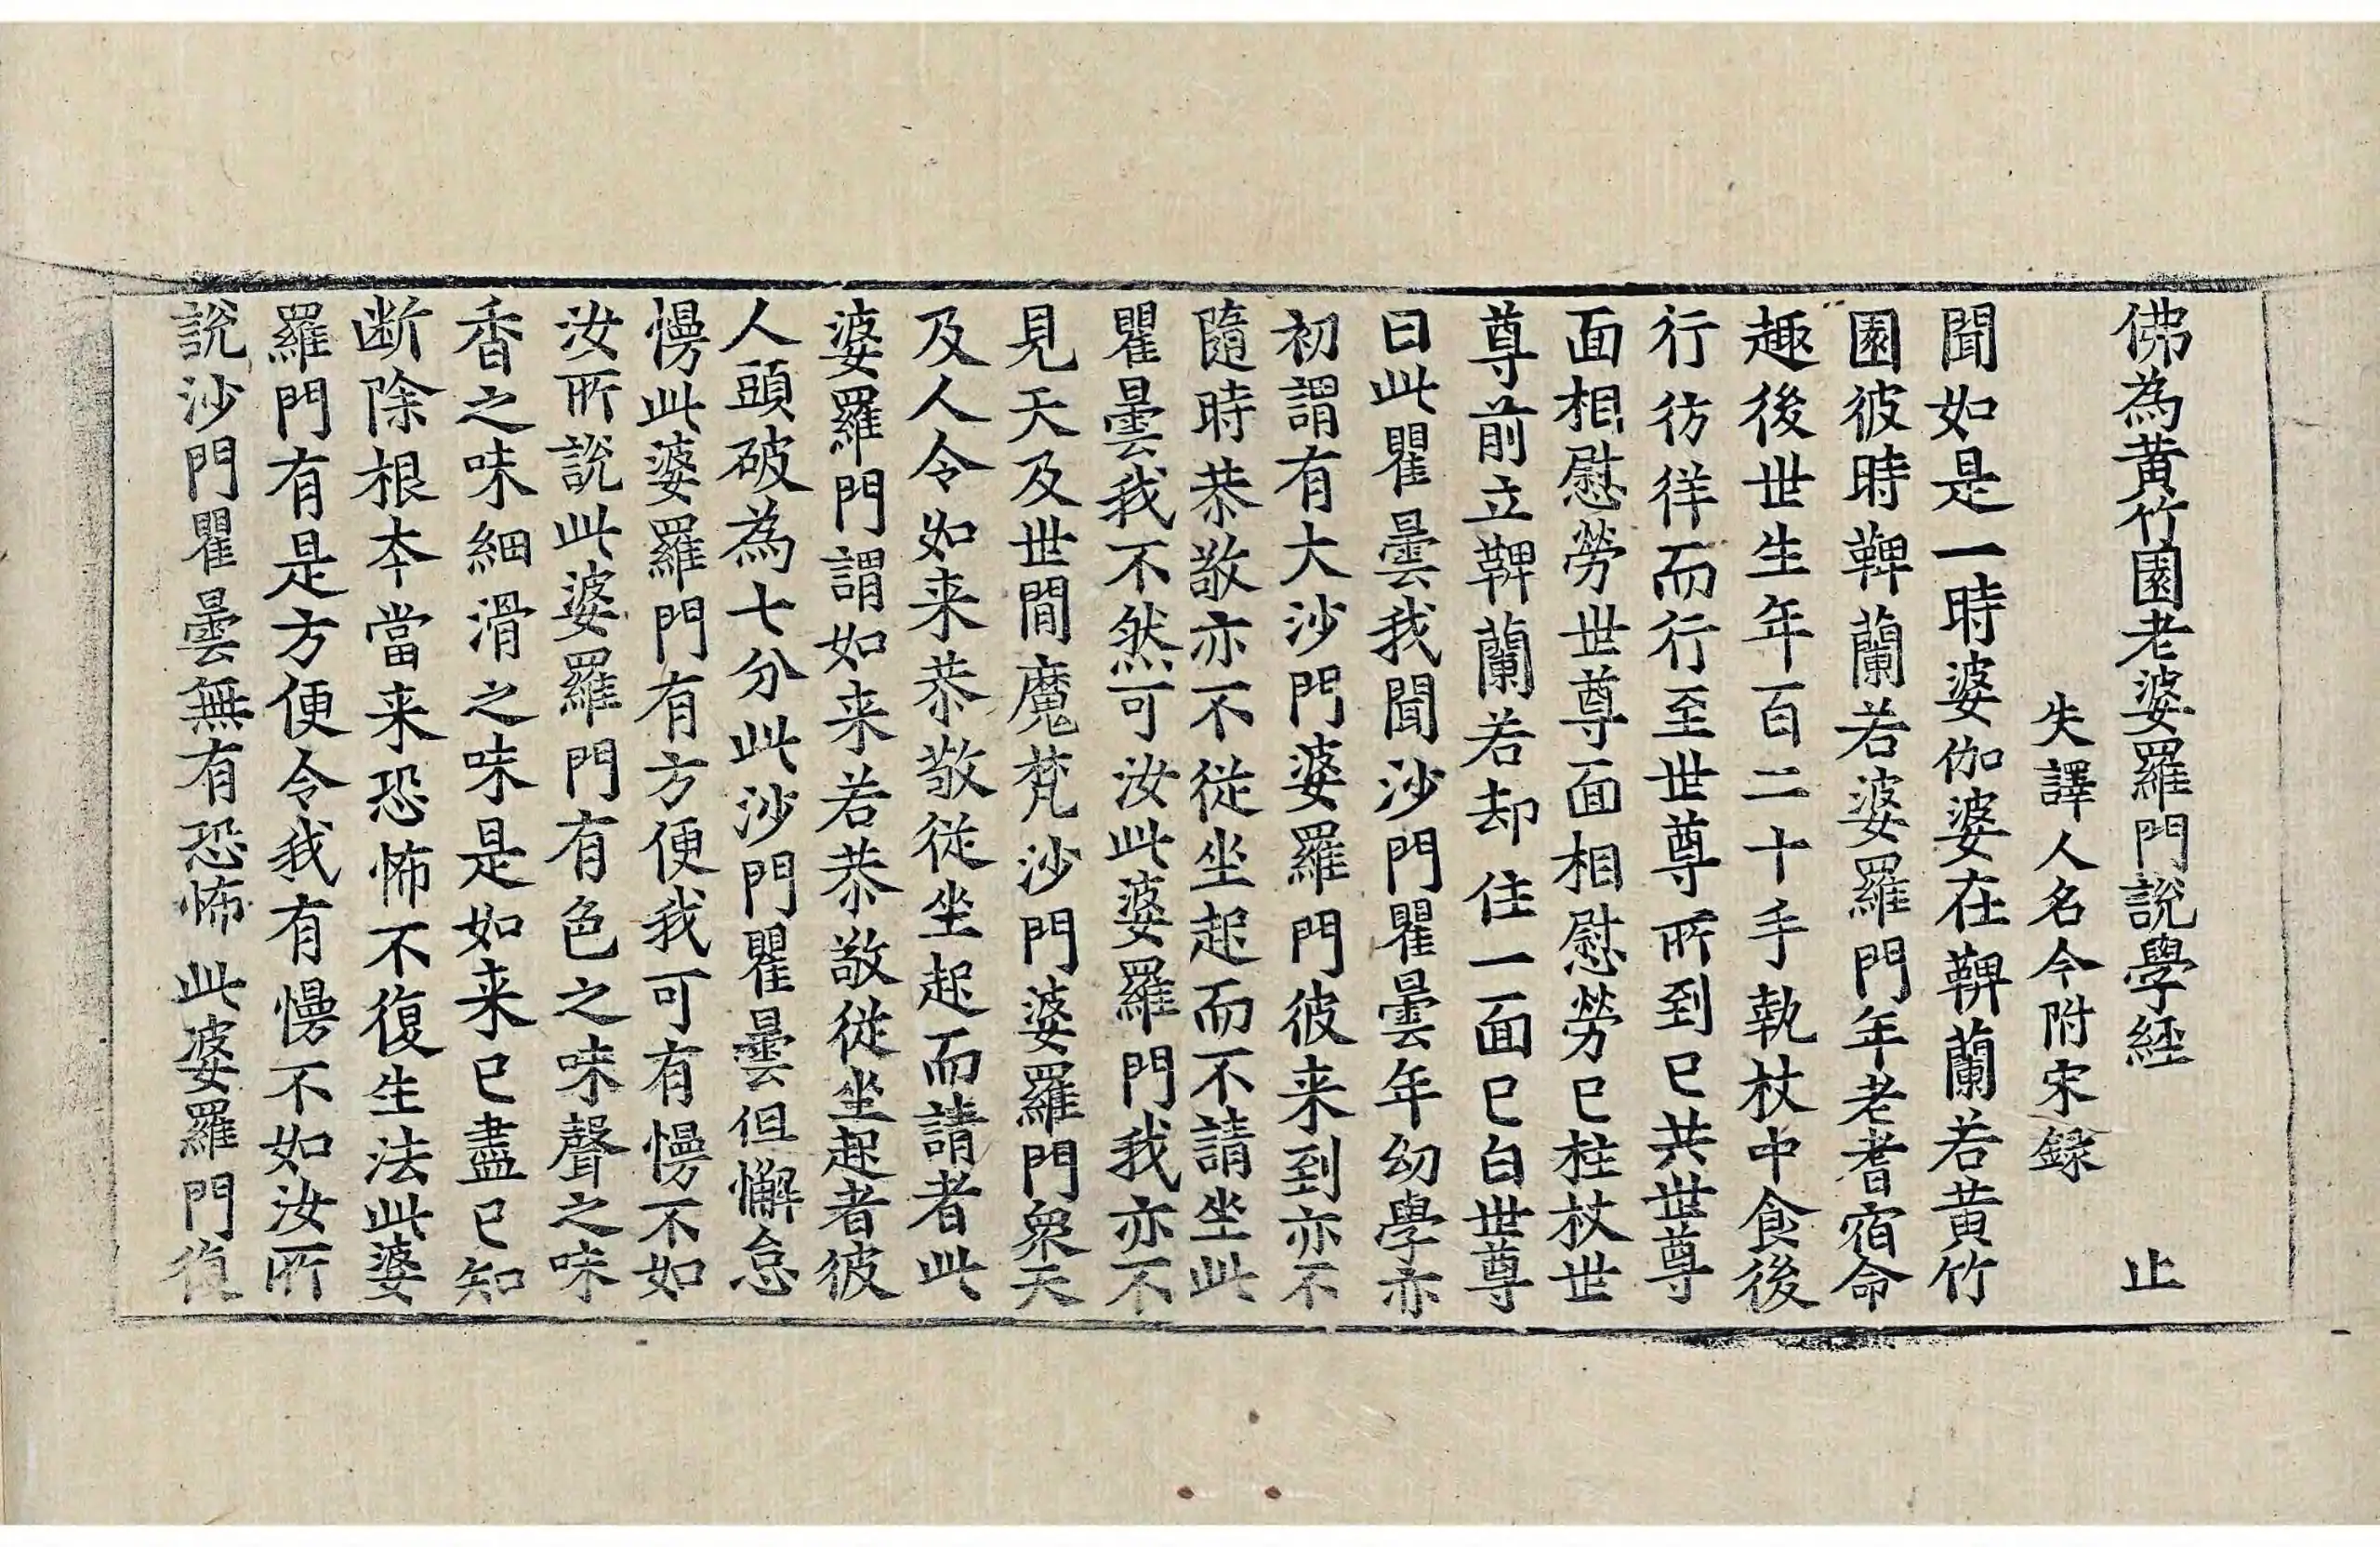 佛為黃竹園老婆羅門說學經 止
失譯人名今附宋録
聞如是一時婆伽婆在鞞蘭若黃竹
園彼時鞞蘭若婆羅門年老耆宿命
趣後世生年百二十手執杖中食後
行彷徉而行至世尊所到已共世尊
面相慰勞世尊面相慰勞已柱杖世
尊前立鞞蘭若却住一面已白世尊
曰此瞿曇我聞沙門瞿曇年幼學亦
初謂有大沙門婆羅門彼来到亦不
隨時恭敬亦不從坐起而不請坐此
瞿曇我不然可汝此婆羅門我亦不
見天及世間魔梵沙門婆羅門衆天
及人令如来恭敬從坐起而請者此
婆羅門謂如来若恭敬從坐起者彼
人頭破為七分此沙門瞿曇但懈怠
慢此婆羅門有方便我可有慢不如
汝所說此婆羅門有色之味聲之味
香之味細滑之味是如来已盡已知
断除根本當来恐怖不復生法此婆
羅門有是方便令我有慢不如汝所
說沙門瞿曇無有恐怖此婆羅門復